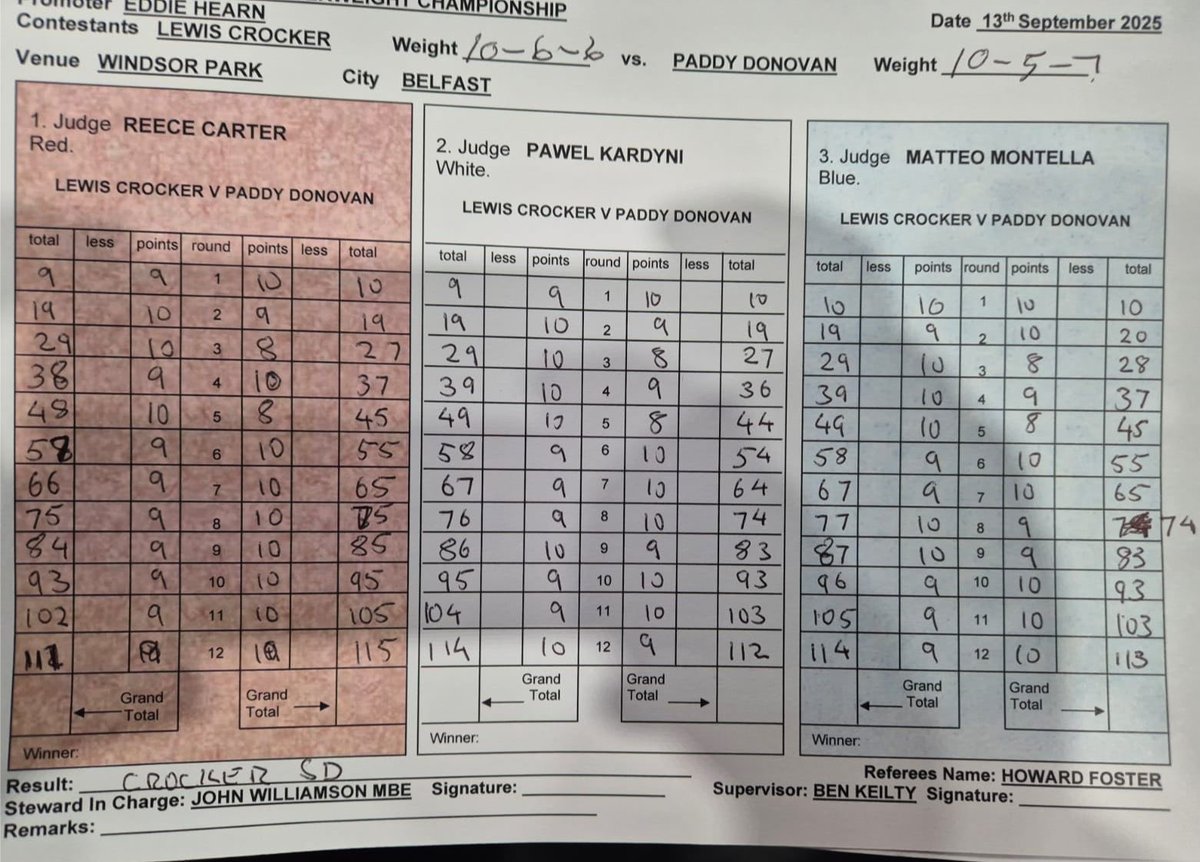 Promoter EDDIE HEARN
CHAMPIONSHIP
Contestants LEWIS CROCKER Weight 10-6-6 vs. PADDY DONOVAN Weight 10-5-7
Date 13th September 2025
Venue WINDSOR PARK City BELFAST
1. Judge REECE CARTER
Red.
LEWIS CROCKER V PADDY DONOVAN
total less points round points less total
9 9 1 10 10
19 10 2 9 19
29 10 3 8 27
38 9 4 10 37
48 10 5 8 45
58 9 6 10 55
66 9 7 10 65
75 9 8 10 75
84 9 9 10 85
93 9 10 10 95
102 9 11 10 105
111 9 12 10 115
Grand Total Grand Total
Winner:
2. Judge PAWEL KARDYNI
White.
LEWIS CROCKER V PADDY DONOVAN
total less points round points less total
9 9 1 10 10
19 10 2 9 19
29 10 3 8 27
39 10 4 9 36
49 10 5 8 44
58 9 6 10 54
67 9 7 10 64
76 9 8 10 74
86 10 9 9 83
95 9 10 10 93
104 9 11 10 103
114 10 12 9 112
Grand Total Grand Total
Winner:
3. Judge MATTEO MONTELLA
Blue.
LEWIS CROCKER V PADDY DONOVAN
total less points round points less total
10 10 1 10 10
19 9 2 10 20
29 10 3 8 28
39 10 4 9 37
49 10 5 8 45
58 9 6 10 55
67 9 7 10 65
77 10 8 9 74
87 10 9 9 83
96 9 10 10 93
105 9 11 10 103
114 9 12 10 113
Grand Total Grand Total
Winner:
Result: CROCKER SD
Referees Name: HOWARD FOSTER
Steward In Charge: JOHN WILLIAMSON MBE Signature:
Supervisor: BEN KEILTY Signature:
Remarks: